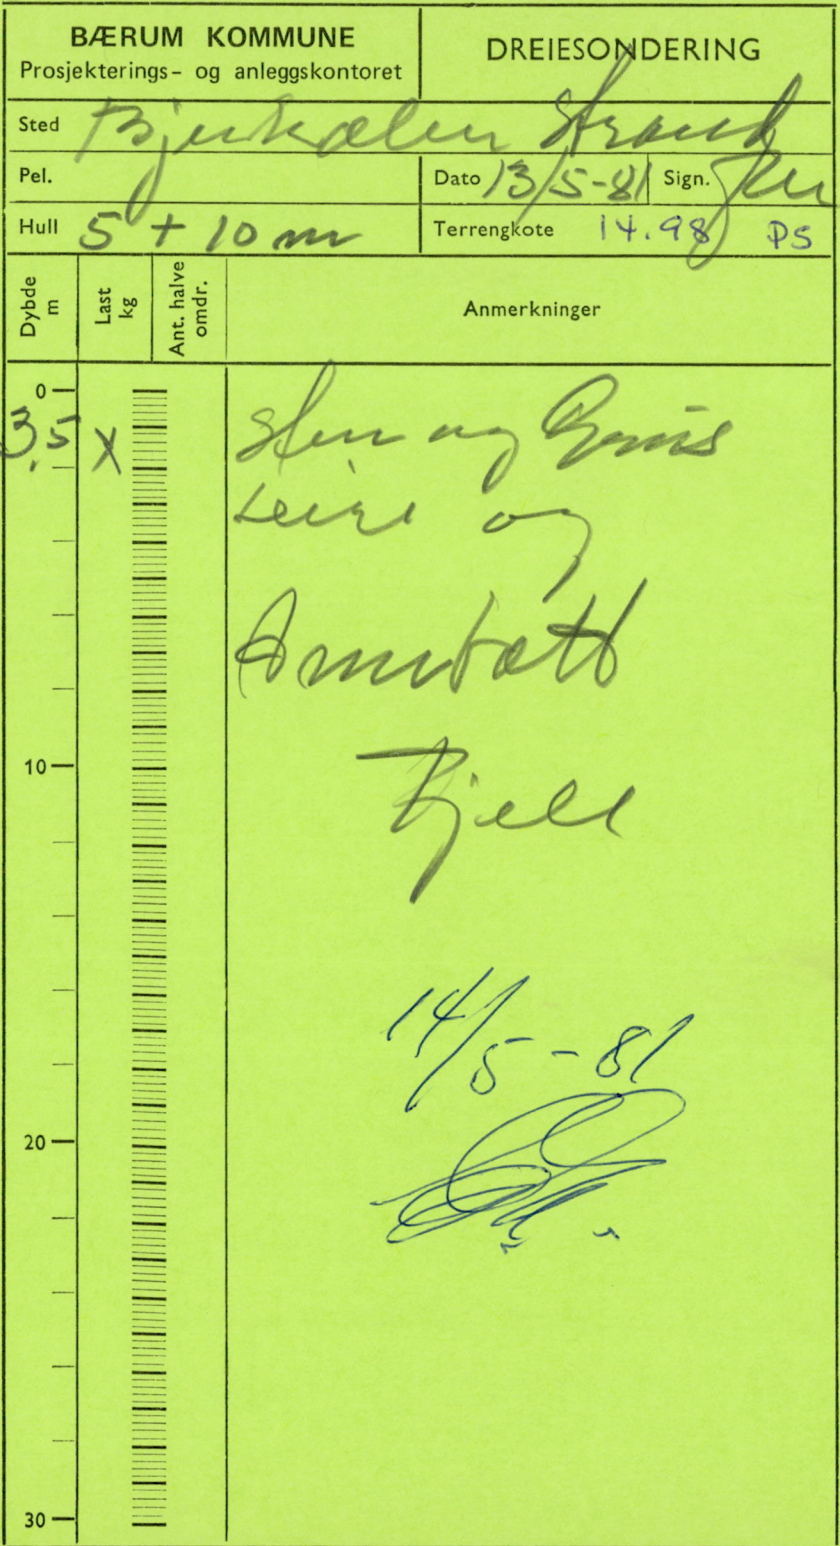 BÆRUM KOMMUNE
Prosjekterings- og anleggskontoret
DREIESONDERING
Sted Strand
Pel.
Dato 13/5-81 Sign.
Hull 5 + 10 m
Terrengkote 14.98 PS
Dybde m
Last kg
Ant. halve omdr.
Anmerkninger
0
3,5 X
Sten og Grus
Leire og
Antatt
Fjell
10
14/5-81
20
30